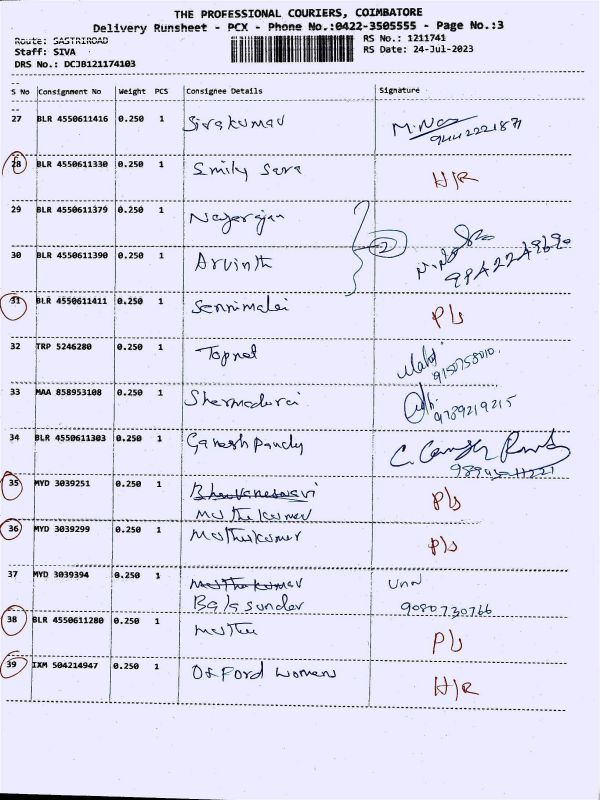 THE PROFESSIONAL COURIERS, COIMBATORE
Delivery Runsheet - PCX - Phone No.:0422-3505555 - Page No.:3
Route: SASTRIROAD RS No.: 1211741
Staff: SIVA RS Date: 24-Jul-2023
DRS No.: DCJB121174103
S No Consignment No Weight PCS Consignee Details Signature
27 BLR 4550611416 0.250 1 Sivakumar
28 BLR 4550611330 0.250 1 Smily Sara H/R
29 BLR 4550611379 0.250 1 Nagarajan
2
30 BLR 4550611390 0.250 1 Arvinth
31 BLR 4550611411 0.250 1 Sennimalai P/s
32 TRP 5246280 0.250 1 Topnet
9150758010.
33 MAA 858953108 0.250 1 Shermadurai
9789219215
34 BLR 4550611303 0.250 1 Ganesh Pandy
35 MYD 3039251 0.250 1 Bhuvaneswari P/s
Muthukumar
36 MYD 3039299 0.250 1 Muthukumar P/s
37 MYD 3039394 0.250 1 Muthukumar
Balasundar 9080730766
38 BLR 4550611280 0.250 1 Muthu P/s
39 IXM 504214947 0.250 1 Oxford women H/R